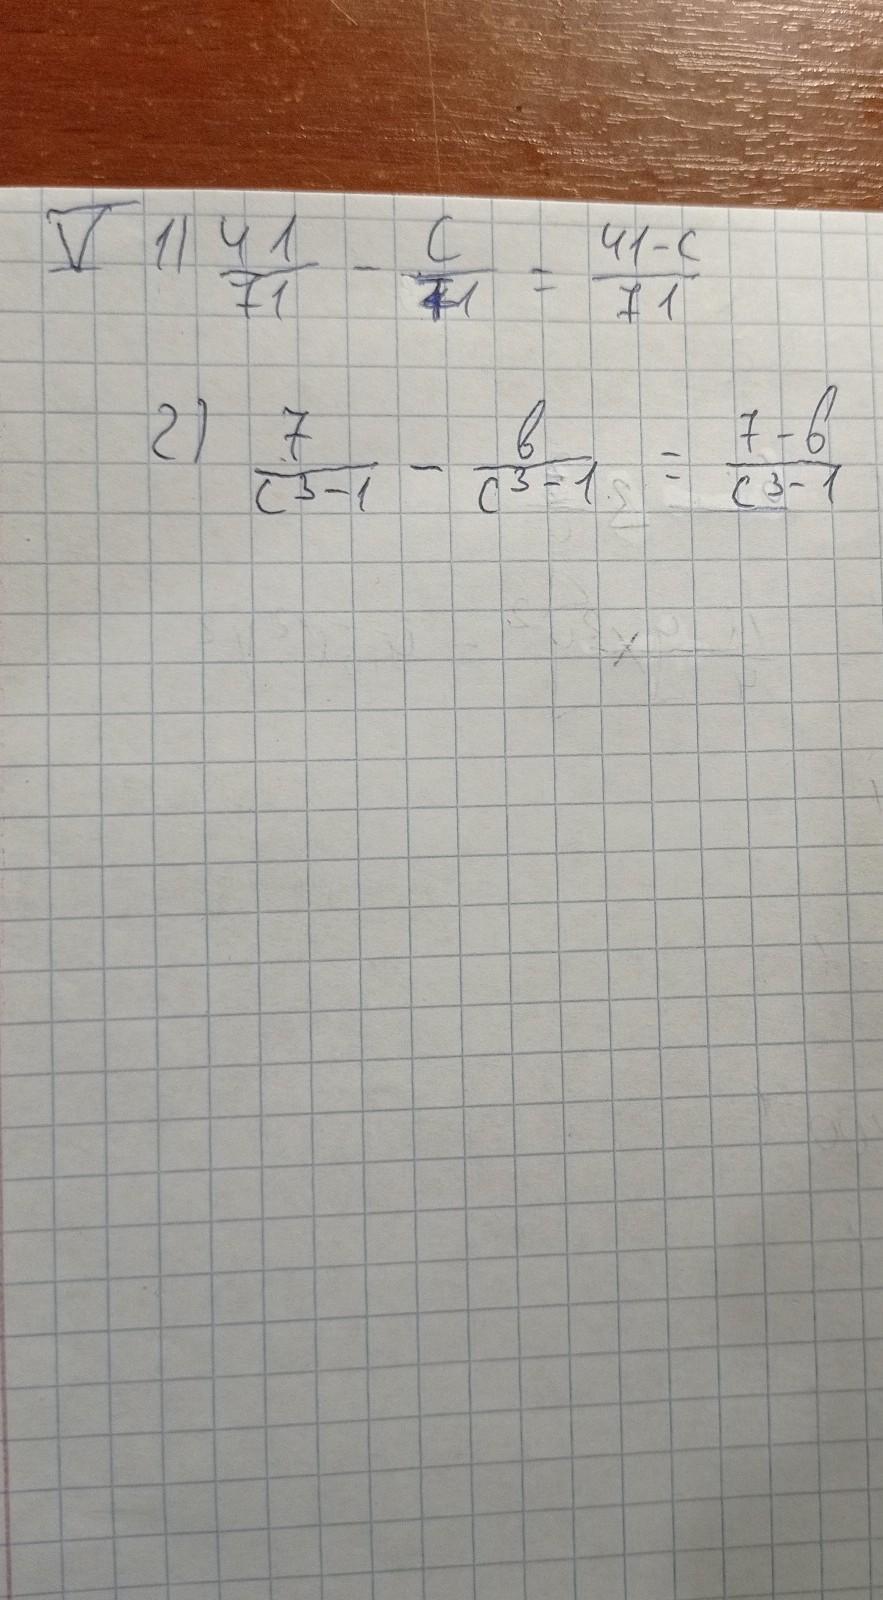 V 1) 41/71 - c/71 = 41-c/71
2) 7/c³-1 - b/c³-1 = 7-b/c³-1